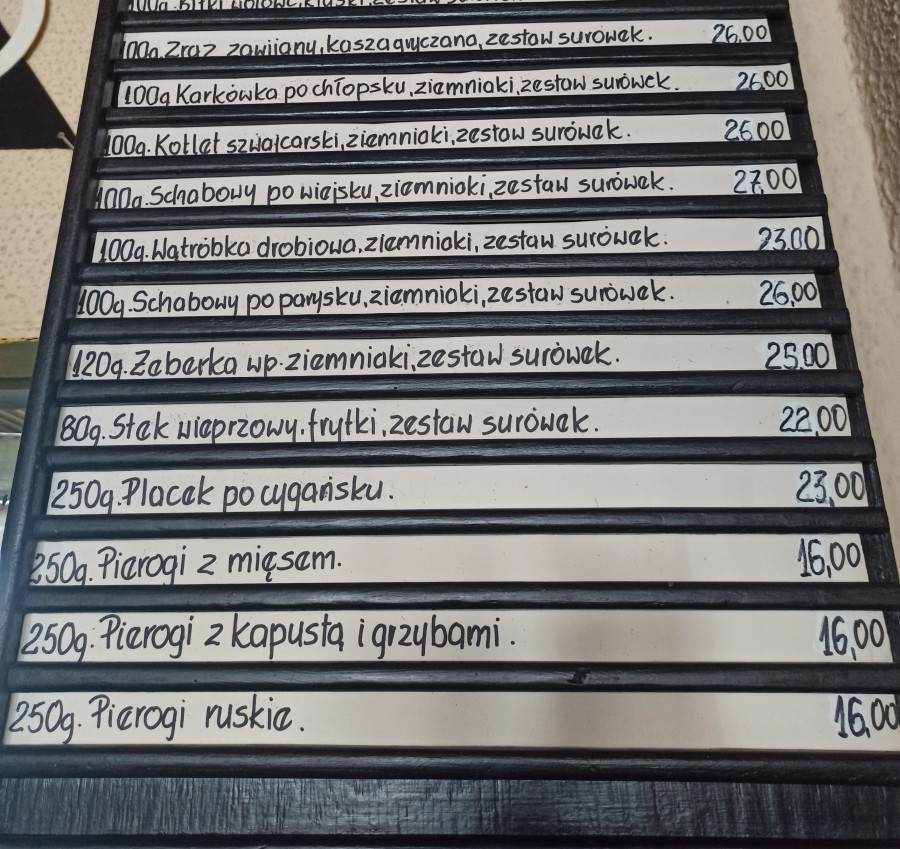 100g. Zraz zawijany, kasza gryczana, zestaw surówek. 26.00
100g Karkówka po chłopsku, ziemniaki, zestaw surówek. 26,00
100g. Kotlet szwajcarski, ziemniaki, zestaw surówek. 26.00
100g. Schabowy po wiejsku, ziemniaki, zestaw surówek. 27,00
100g. Wątróbka drobiowa, ziemniaki, zestaw surówek. 23.00
100g. Schabowy po parysku, ziemniaki, zestaw surówek. 26,00
120g. Żeberka wp. ziemniaki, zestaw surówek. 25.00
80g. Stek wieprzowy. frytki, zestaw surówek. 22,00
250g. Placek po cygańsku. 23,00
250g. Pierogi z mięsem. 16,00
250g. Pierogi z kapustą i grzybami. 16,00
250g. Pierogi ruskie. 16,00